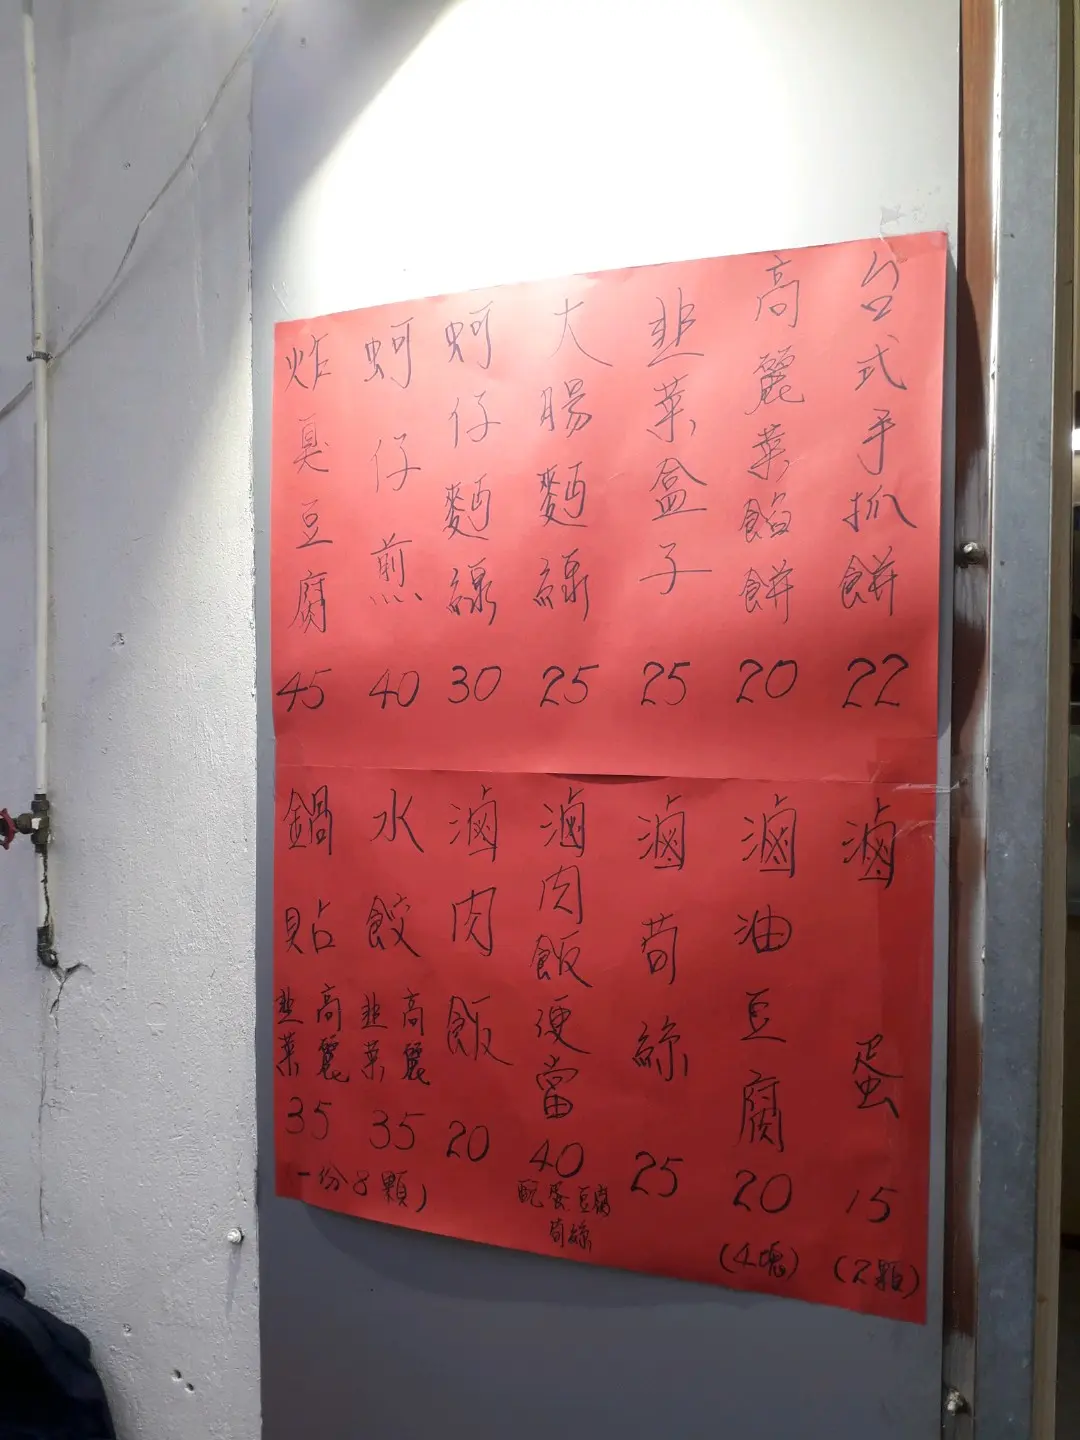 台式手抓餅 22
高麗菜餡餅 20
韮菜盒子 25
大腸麵線 25
蚵仔麵線 30
蚵仔煎 40
炸臭豆腐 45
滷蛋 15 (2顆)
滷油豆腐 20 (4塊)
滷荀絲 25
滷肉飯便當 40 配蛋豆腐荀絲
滷肉飯 20
水餃 高麗 韮菜 35
鍋貼 高麗 韮菜 35
一份8顆)